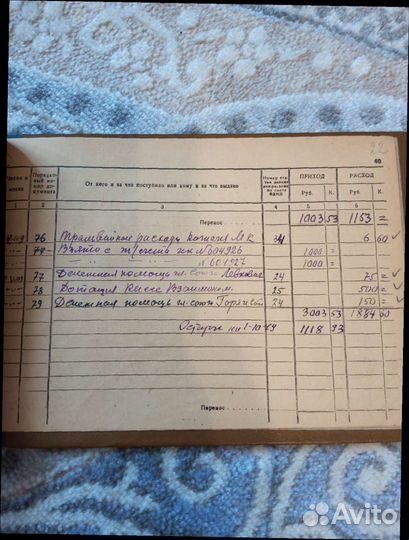 22
40
Число и месяц Порядковый номер документа От кого и за что поступило или кому и за что выдано Номер статьи, раздела ПРИХОД РАСХОД
Руб. К. Руб. К.
1 2 3 4 5 6
Перенос 1003 53 1153 =
76 Трамвайные расходы МК 24 6 60
Взято с чк № 604926 1000 =
" " " № 601927 1000 =
77 Денежная помощь чл. союз. 24 75 =
78 Дотация Кассе Взаимопом. 25 500 =
79 Денежная помощь чл. союз 24 150 =
3003 53 1884 60
Остаток на 1-10-49 1118 93
Перенос
Avito